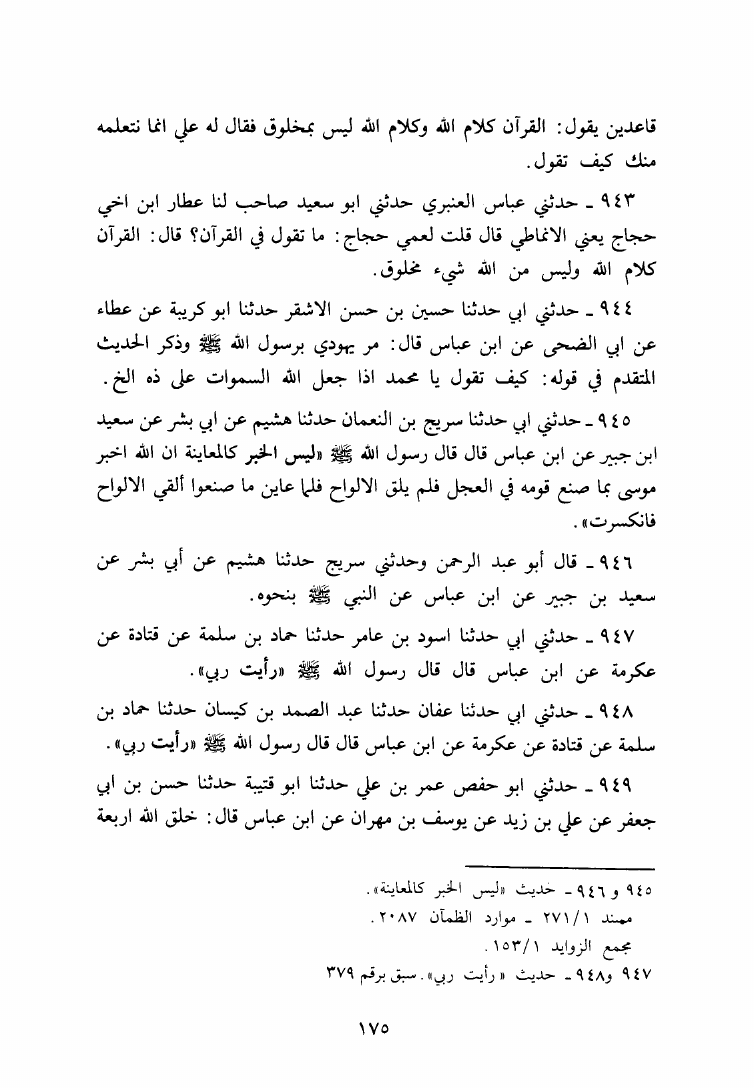 قاعدين يقول: القرآن كلام الله وكلام الله ليس بمخلوق فقال له علي انما نتعلمه
منك كيف تقول.
٩٤٣ ـ حدثني عباس العنبري حدثني ابو سعيد صاحب لنا عطار ابن اخي
حجاج يعني الانماطي قال قلت لعمي حجاج: ما تقول في القرآن؟ قال: القرآن
كلام الله وليس من الله شيء مخلوق.
٩٤٤ ـ حدثني ابي حدثنا حسين بن حسن الاشقر حدثنا ابو كريبة عن عطاء
عن ابي الضحى عن ابن عباس قال: مر يهودي برسول الله ﷺ وذكر الحديث
المتقدم في قوله: كيف تقول يا محمد اذا جعل الله السموات على ذه الخ.
٩٤٥ ـ حدثني ابي حدثنا سريج بن النعمان حدثنا هشيم عن ابي بشر عن سعيد
ابن جبير عن ابن عباس قال قال رسول الله ﷺ «ليس الخبر كالمعاينة ان الله اخبر
موسى بما صنع قومه في العجل فلم يلق الالواح فلما عاين ما صنعوا ألقي الالواح
فانكسرت».
٩٤٦ ـ قال أبو عبد الرحمن وحدثني سريج حدثنا هشيم عن أبي بشر عن
سعيد بن جبير عن ابن عباس عن النبي ﷺ بنحوه.
٩٤٧ ـ حدثني ابي حدثنا اسود بن عامر حدثنا حماد بن سلمة عن قتادة عن
عكرمة عن ابن عباس قال قال رسول الله ﷺ «رأيت ربي».
٩٤٨ ـ حدثني ابي حدثنا عفان حدثنا عبد الصمد بن كيسان حدثنا حماد بن
سلمة عن قتادة عن عكرمة عن ابن عباس قال قال رسول الله ﷺ «رأيت ربي».
٩٤٩ ـ حدثني ابو حفص عمر بن علي حدثنا ابو قتيبة حدثنا حسن بن ابي
جعفر عن علي بن زيد عن يوسف بن مهران عن ابن عباس قال: خلق الله اربعة
٩٤٥ و ٩٤٦ ـ حديث «ليس الخبر كالمعاينة».
مسند ٢٧١/١ ـ موارد الظمآن ٢٠٨٧.
مجمع الزوايد ١٥٣/١.
٩٤٧ و٩٤٨ ـ حديث «رأيت ربي». سبق برقم ٣٧٩
١٧٥